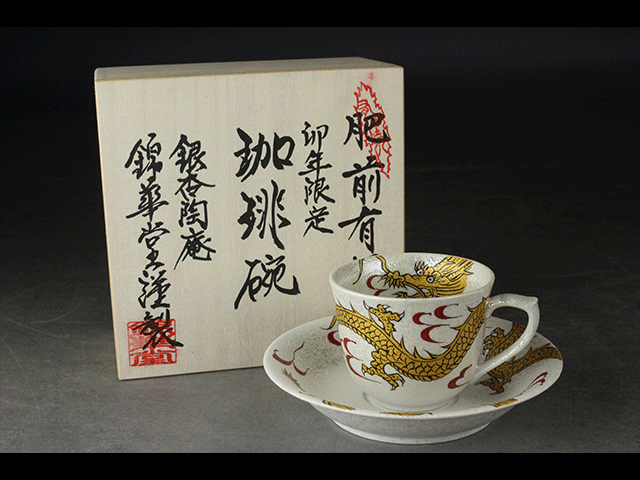 肥前有
卯年限定
珈琲碗
銀杏陶庵
錦華堂謹製